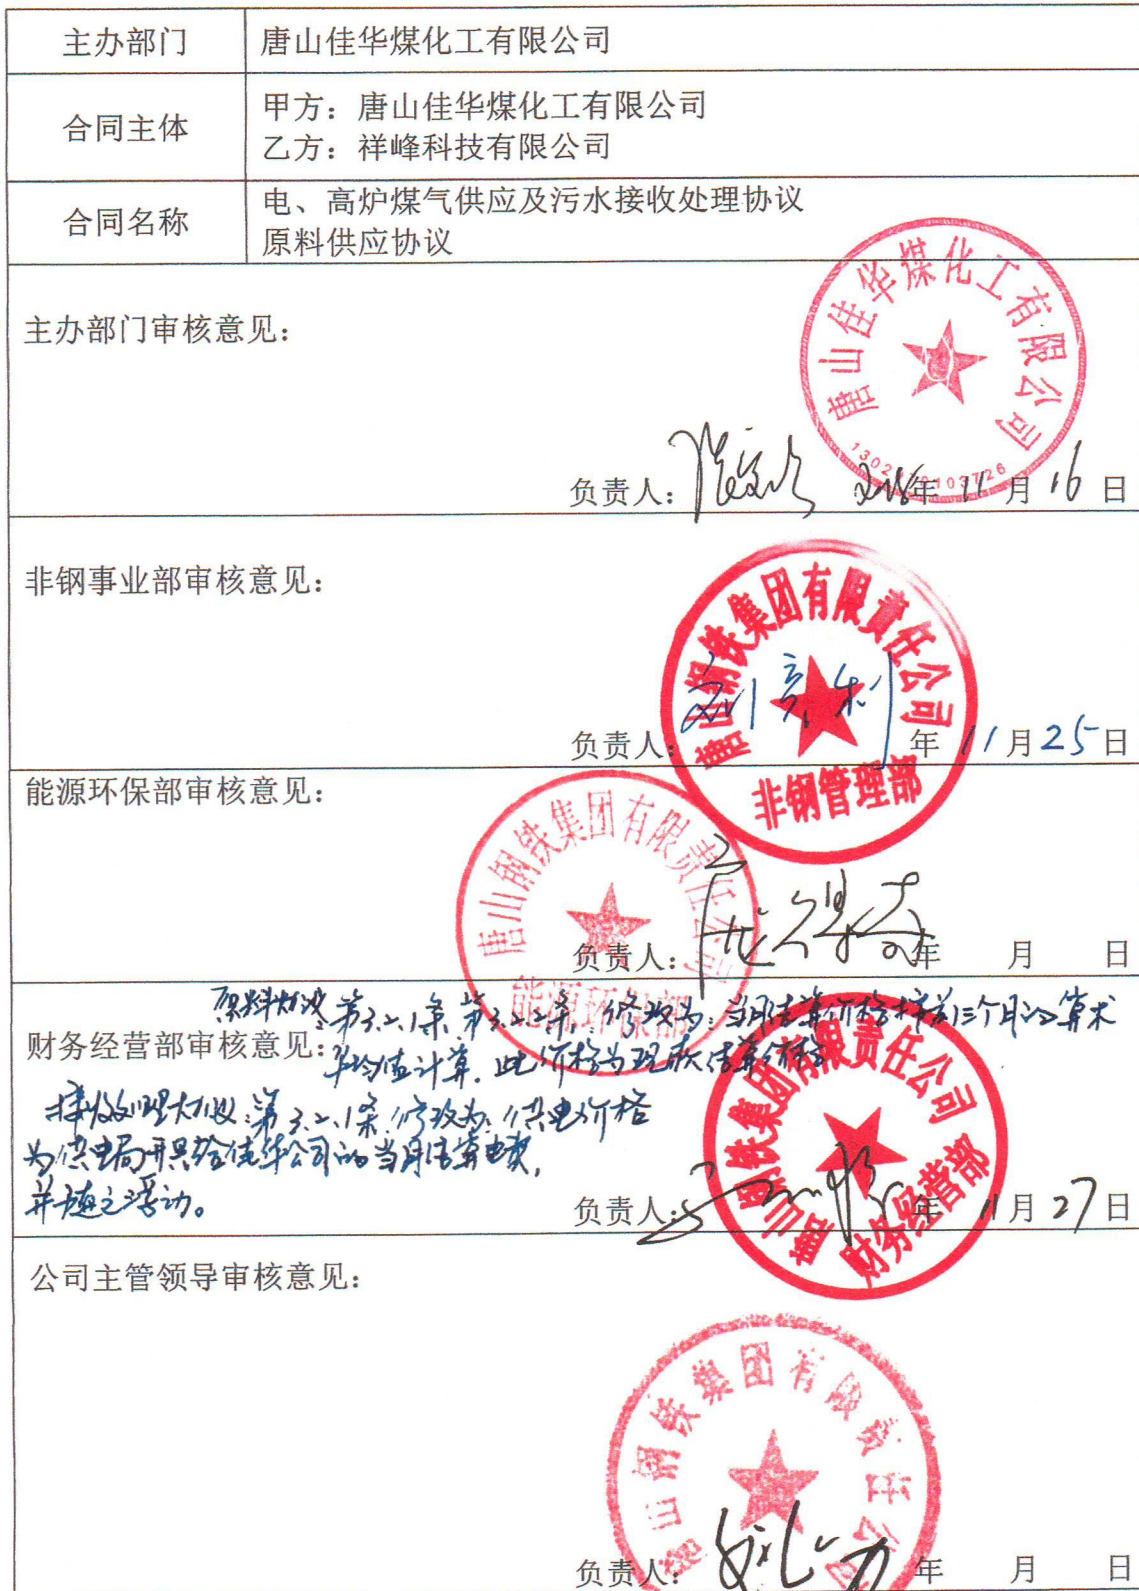 主办部门
唐山佳华煤化工有限公司
合同主体
甲方：唐山佳华煤化工有限公司
乙方：祥峰科技有限公司
合同名称
电、高炉煤气供应及污水接收处理协议
原料供应协议
主办部门审核意见：
唐山佳华煤化工有限公司
负责人： 年 11 月 16 日
非钢事业部审核意见：
唐山钢铁集团有限责任公司
负责人： 年 11 月 25 日
非钢管理部
能源环保部审核意见：
唐山钢铁集团有限责任公司
负责人： 年 月 日
能源环保部
原料协议：第3.2.1条，第3.2.2条，修改为：当月结算价格按前三个月的算术
财务经营部审核意见：
平均值计算，此价格为现款结算价格
接收处理协议：第3.2.1条，修改为：供电价格
为供电局开具给佳华公司的当月结算电费，
并随之浮动。
唐山钢铁集团有限责任公司
财务经营部
负责人： 年 11 月 27 日
公司主管领导审核意见：
唐山钢铁集团有限责任公司
负责人： 年 月 日